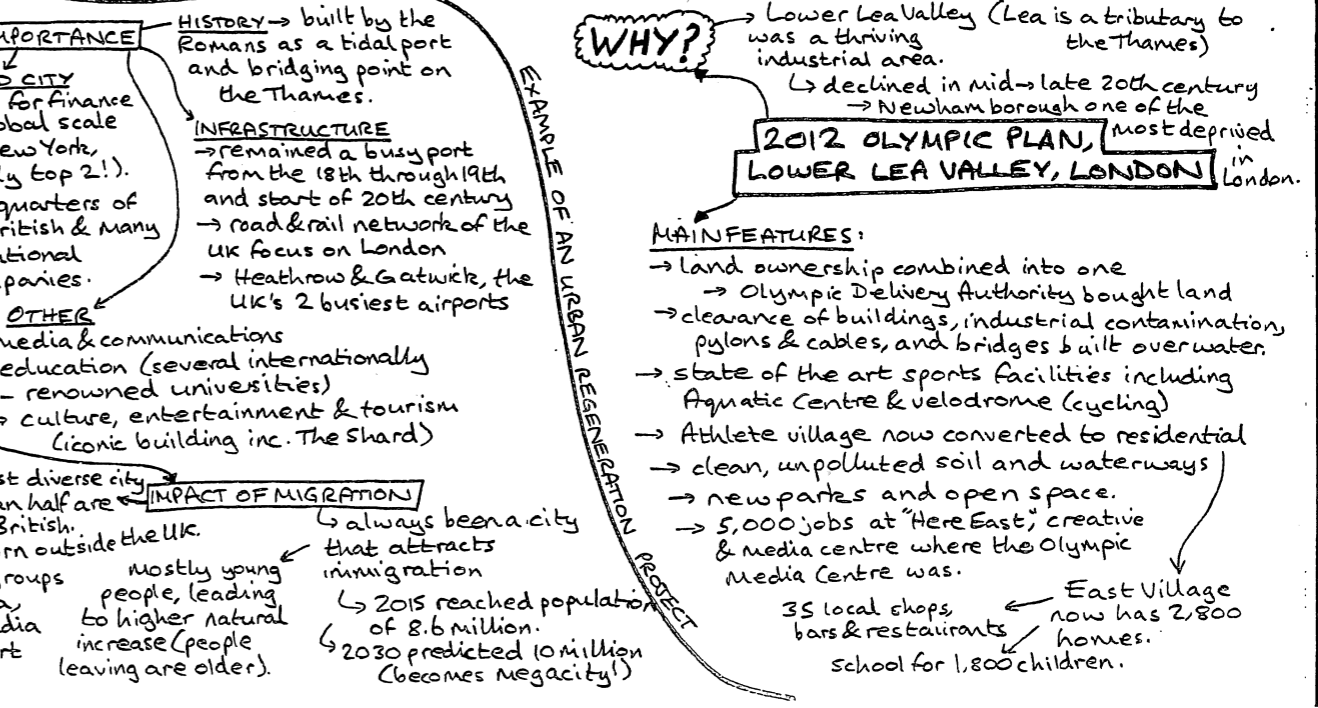 MPORTANCE
D CITY
for finance
obal scale
ew York,
ly top 2!).
quarters of
ritish & Many
ational
panies.
HISTORY → built by the
Romans as a tidal port
and bridging point on
the Thames.
INFRASTRUCTURE
→ remained a busy port
from the 18th through 19th
and start of 20th century
→ road & rail network of the
UK focus on London
→ Heathrow & Gatwick, the
UK's 2 busiest airports
OTHER
media & communications
education (several internationally
renowned universities)
→ culture, entertainment & tourism
(iconic building inc. The Shard)
IMPACT OF MIGRATION
st diverse city
an half are
British.
rn outside the UK.
roups
a,
dia
rt
Mostly young
people, leading
to higher natural
increase (people
leaving are older).
↳ always been a city
that attracts
immigration
↳ 2015 reached population
of 8.6 million.
↳ 2030 predicted 10 million
(becomes megacity!)
EXAMPLE OF AN URBAN REGENERATION PROJECT
WHY?
→ Lower Lea Valley (Lea is a tributary to
was a thriving the Thames)
industrial area.
↳ declined in mid → late 20th century
→ Newham borough one of the
most deprived
in
London.
2012 OLYMPIC PLAN,
LOWER LEA VALLEY, LONDON
MAIN FEATURES:
→ land ownership combined into one
→ Olympic Delivery Authority bought land
→ clearance of buildings, industrial contamination,
pylons & cables, and bridges built over water.
→ state of the art sports facilities including
Aquatic Centre & velodrome (cycling)
→ Athlete village now converted to residential
→ clean, unpolluted soil and waterways
→ new parks and open space.
→ 5,000 jobs at "Here East", creative
& media centre where the Olympic
Media Centre was.
East Village
now has 2,800
homes.
35 local shops,
bars & restaurants
school for 1,800 children.